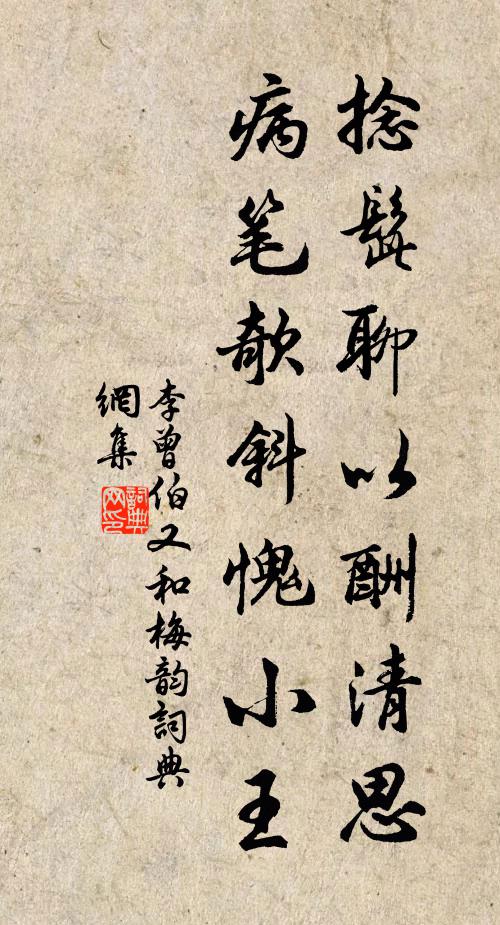 捻髭聊以酬清思
病笔欹斜愧小王
李曾伯又和梅韵詞典
網集
詞典
网印